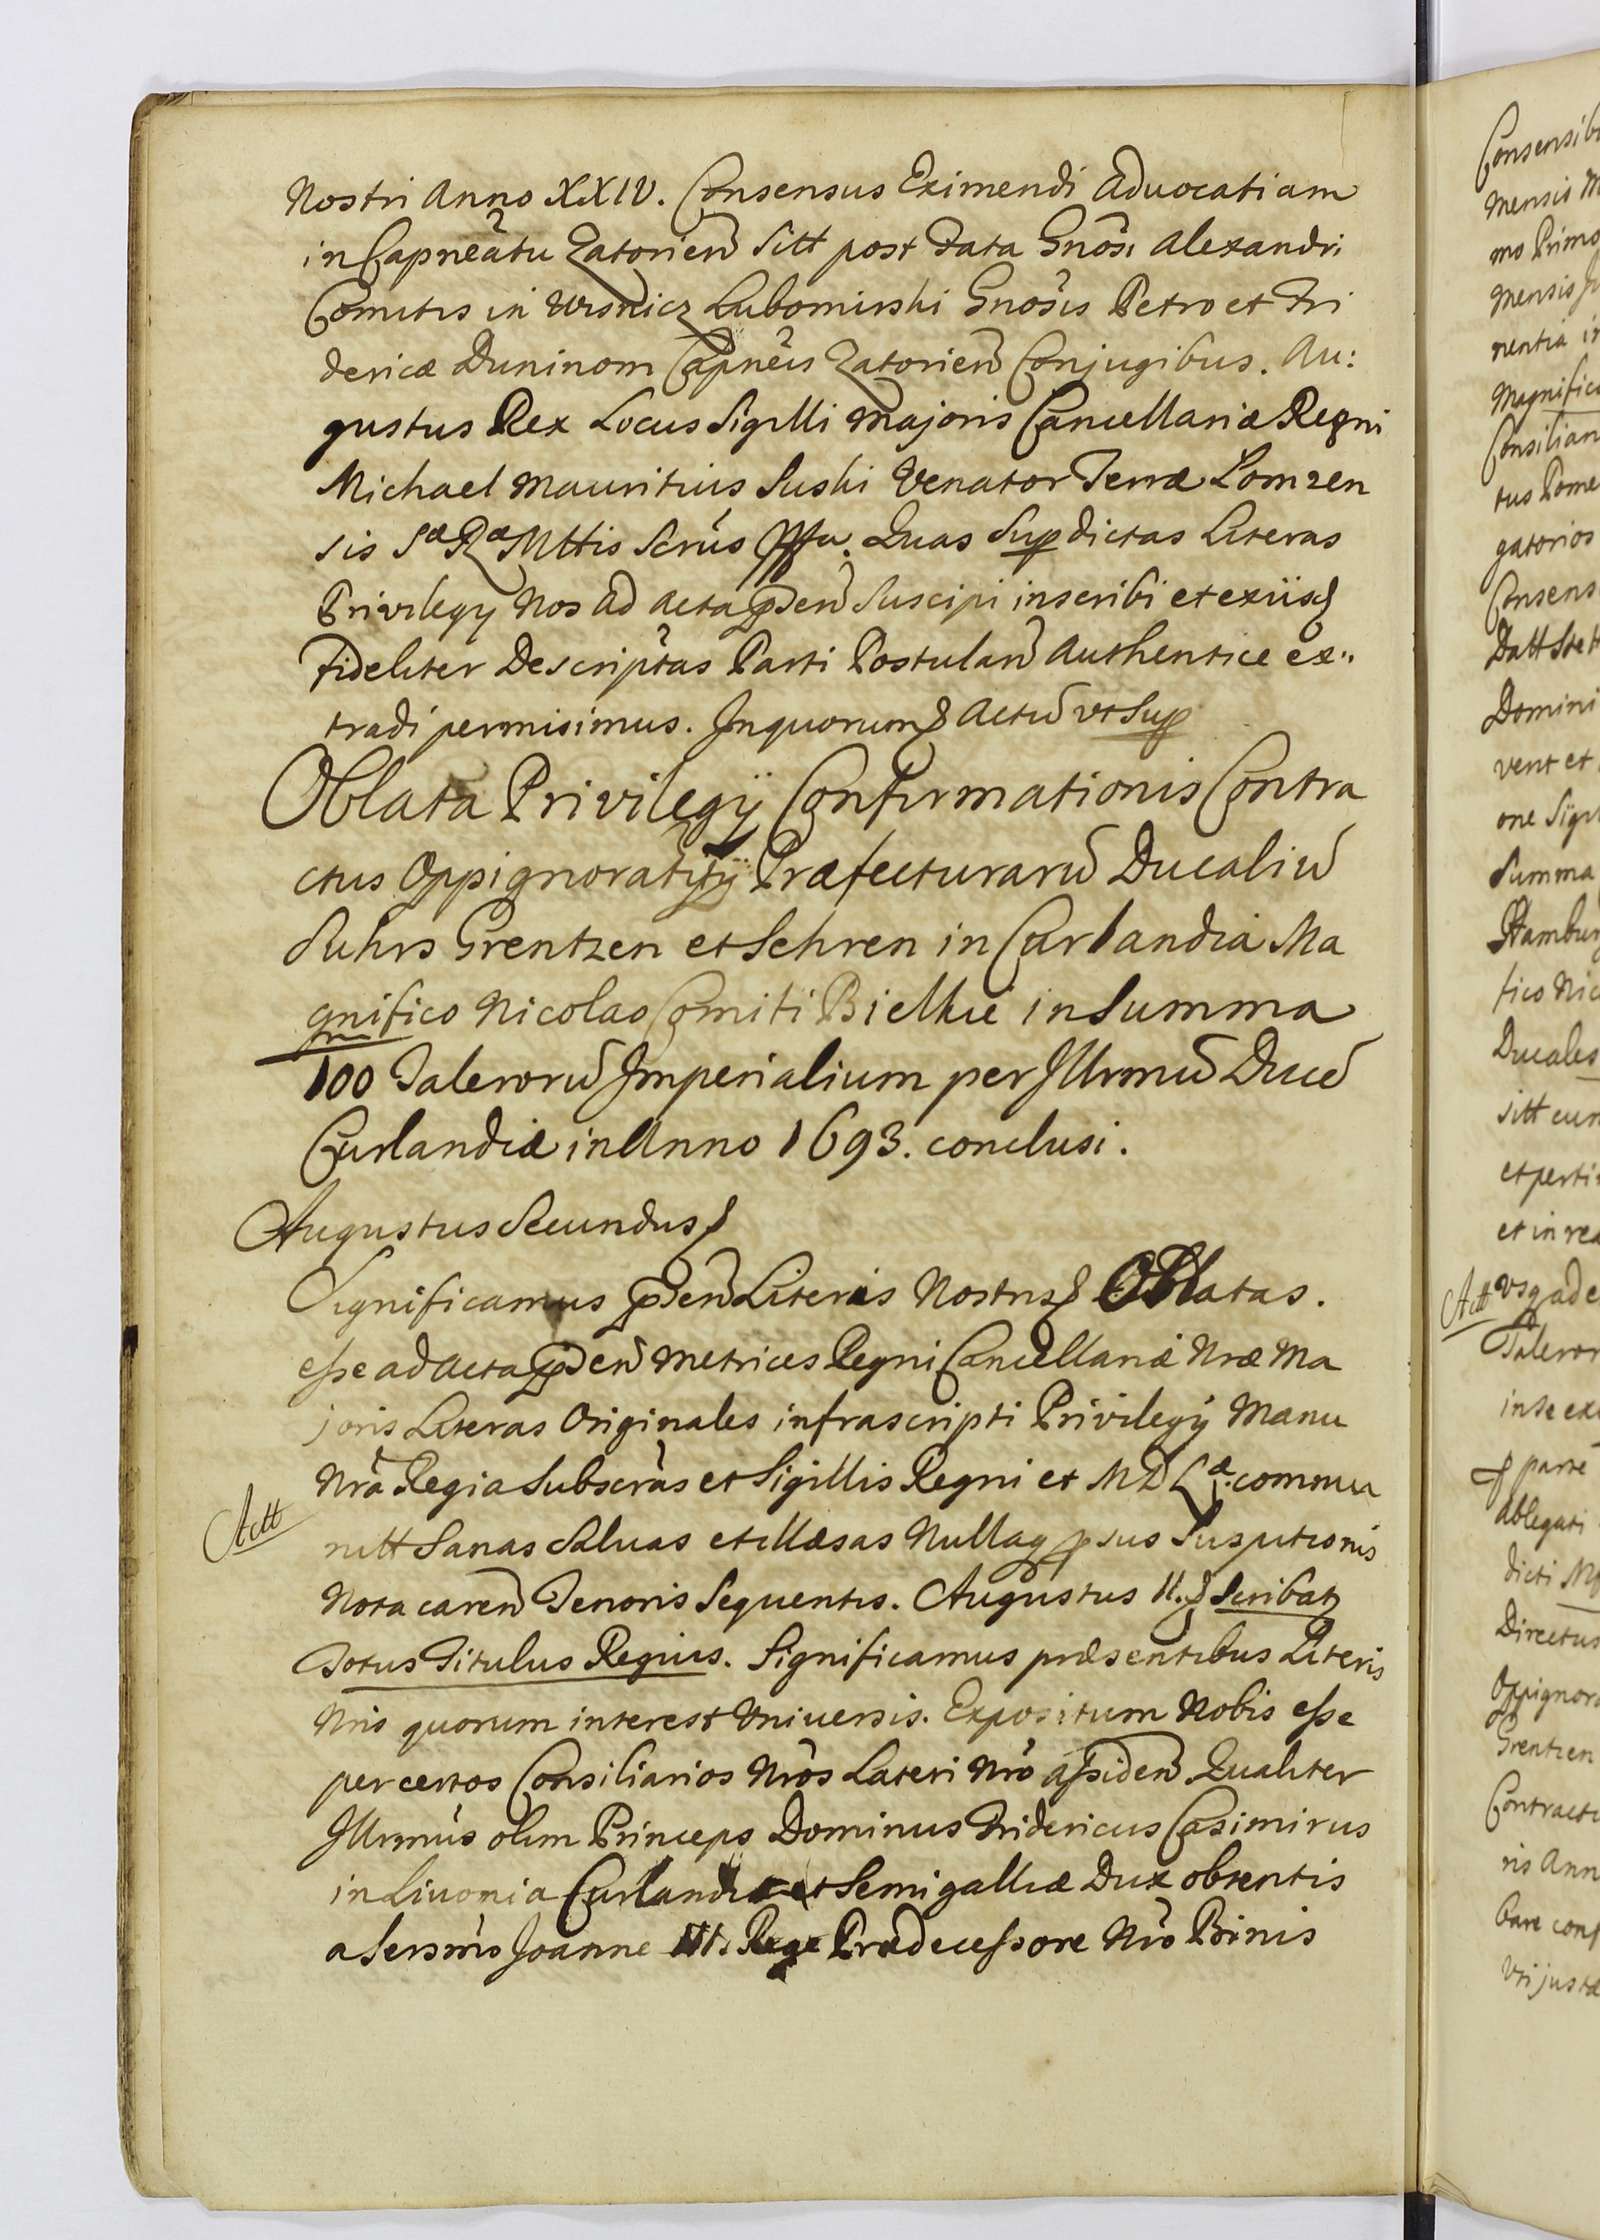 Nostri Anno XXIV. Consensus Eximendi Advocatiam
in Capneãtu Zatorieñ Sitt post Fata Gnõsi Alexandri
Comitis in Wisnicz Lubomirski Gnõsis Petro et Fri
dericæ Duninom Capnẽis Zatorieñ Conjugibus. Au:
gustus Rex Locus Sigilli Majoris Cancellariæ Regni
Michael Mauritius Suski Venator Terræ Lomzen
sis Sæ Ræ Mttis Scrũs Quas Sup dictas Literas
Privilegij Nos ad Acta pñdeñ Suscipi inscribi et exiisd
fideliter Descriptas Parti Postulañ Authentice ex:
tradi permisimus. In quorum Actũ vt Sup
Oblata Privilegij Confirmationis Contra
ctus Oppignoratitij Præfecturarũ Ducaliũ
Suhrs Grentzen et Sehren in Curlandia Ma
gnifico Nicolao Comiti Bielkie in Summa
100 Talerorũ Imperialium per Illrmũ Ducẽ
Curlandiæ in Anno 1693. conclusi.
Augustus Secundus
Significamus Literis Nostris Oblatas.
esse ad Acta Metrices Regni Cancellariæ Nræ Ma
joris Literas Originales infrascripti Privilegij Manu
Nrã Regia Subscrãs et Sigillis Regni et M D L æ. commu
Actt
nitt Sanas Saluas et illæsas Nullaq psus Suspitionis
Nota careñ Tenoris Sequentis. Augustus II. Scribat
Totus Titulus Regius. Significamus præsentibus Literis
Nris quorum interest Vniuersis. Expositum Nobis esse
per certos Consiliarios Nrõs Lateri Nrõ assideñ Qualiter
Illrmũs olim Princeps Dominus Fridericus Casimirus
in Livonia Curlandiæ et Semigalliæ Dux obtentis
a Sersmõ Joanne III. Rege Prædecessore Nrõ Binis
Consensib
mensis M
mo Primo
mensis Ju
nentia in
Magnifico
Consilian
tus Pome
gatorios
Consens
Datt Stett
Domini
vent et
one Sigil
Summa
Hambur
fico Nic
Ducales
sitt cum
et perti
et in rea
Actt vsq ad e
Taleror
in se ex
parte
Ablegati
dicti M
Directus
Oppignora
Grentzen
Contractu
ris Ann
bare conf
Vti justæ